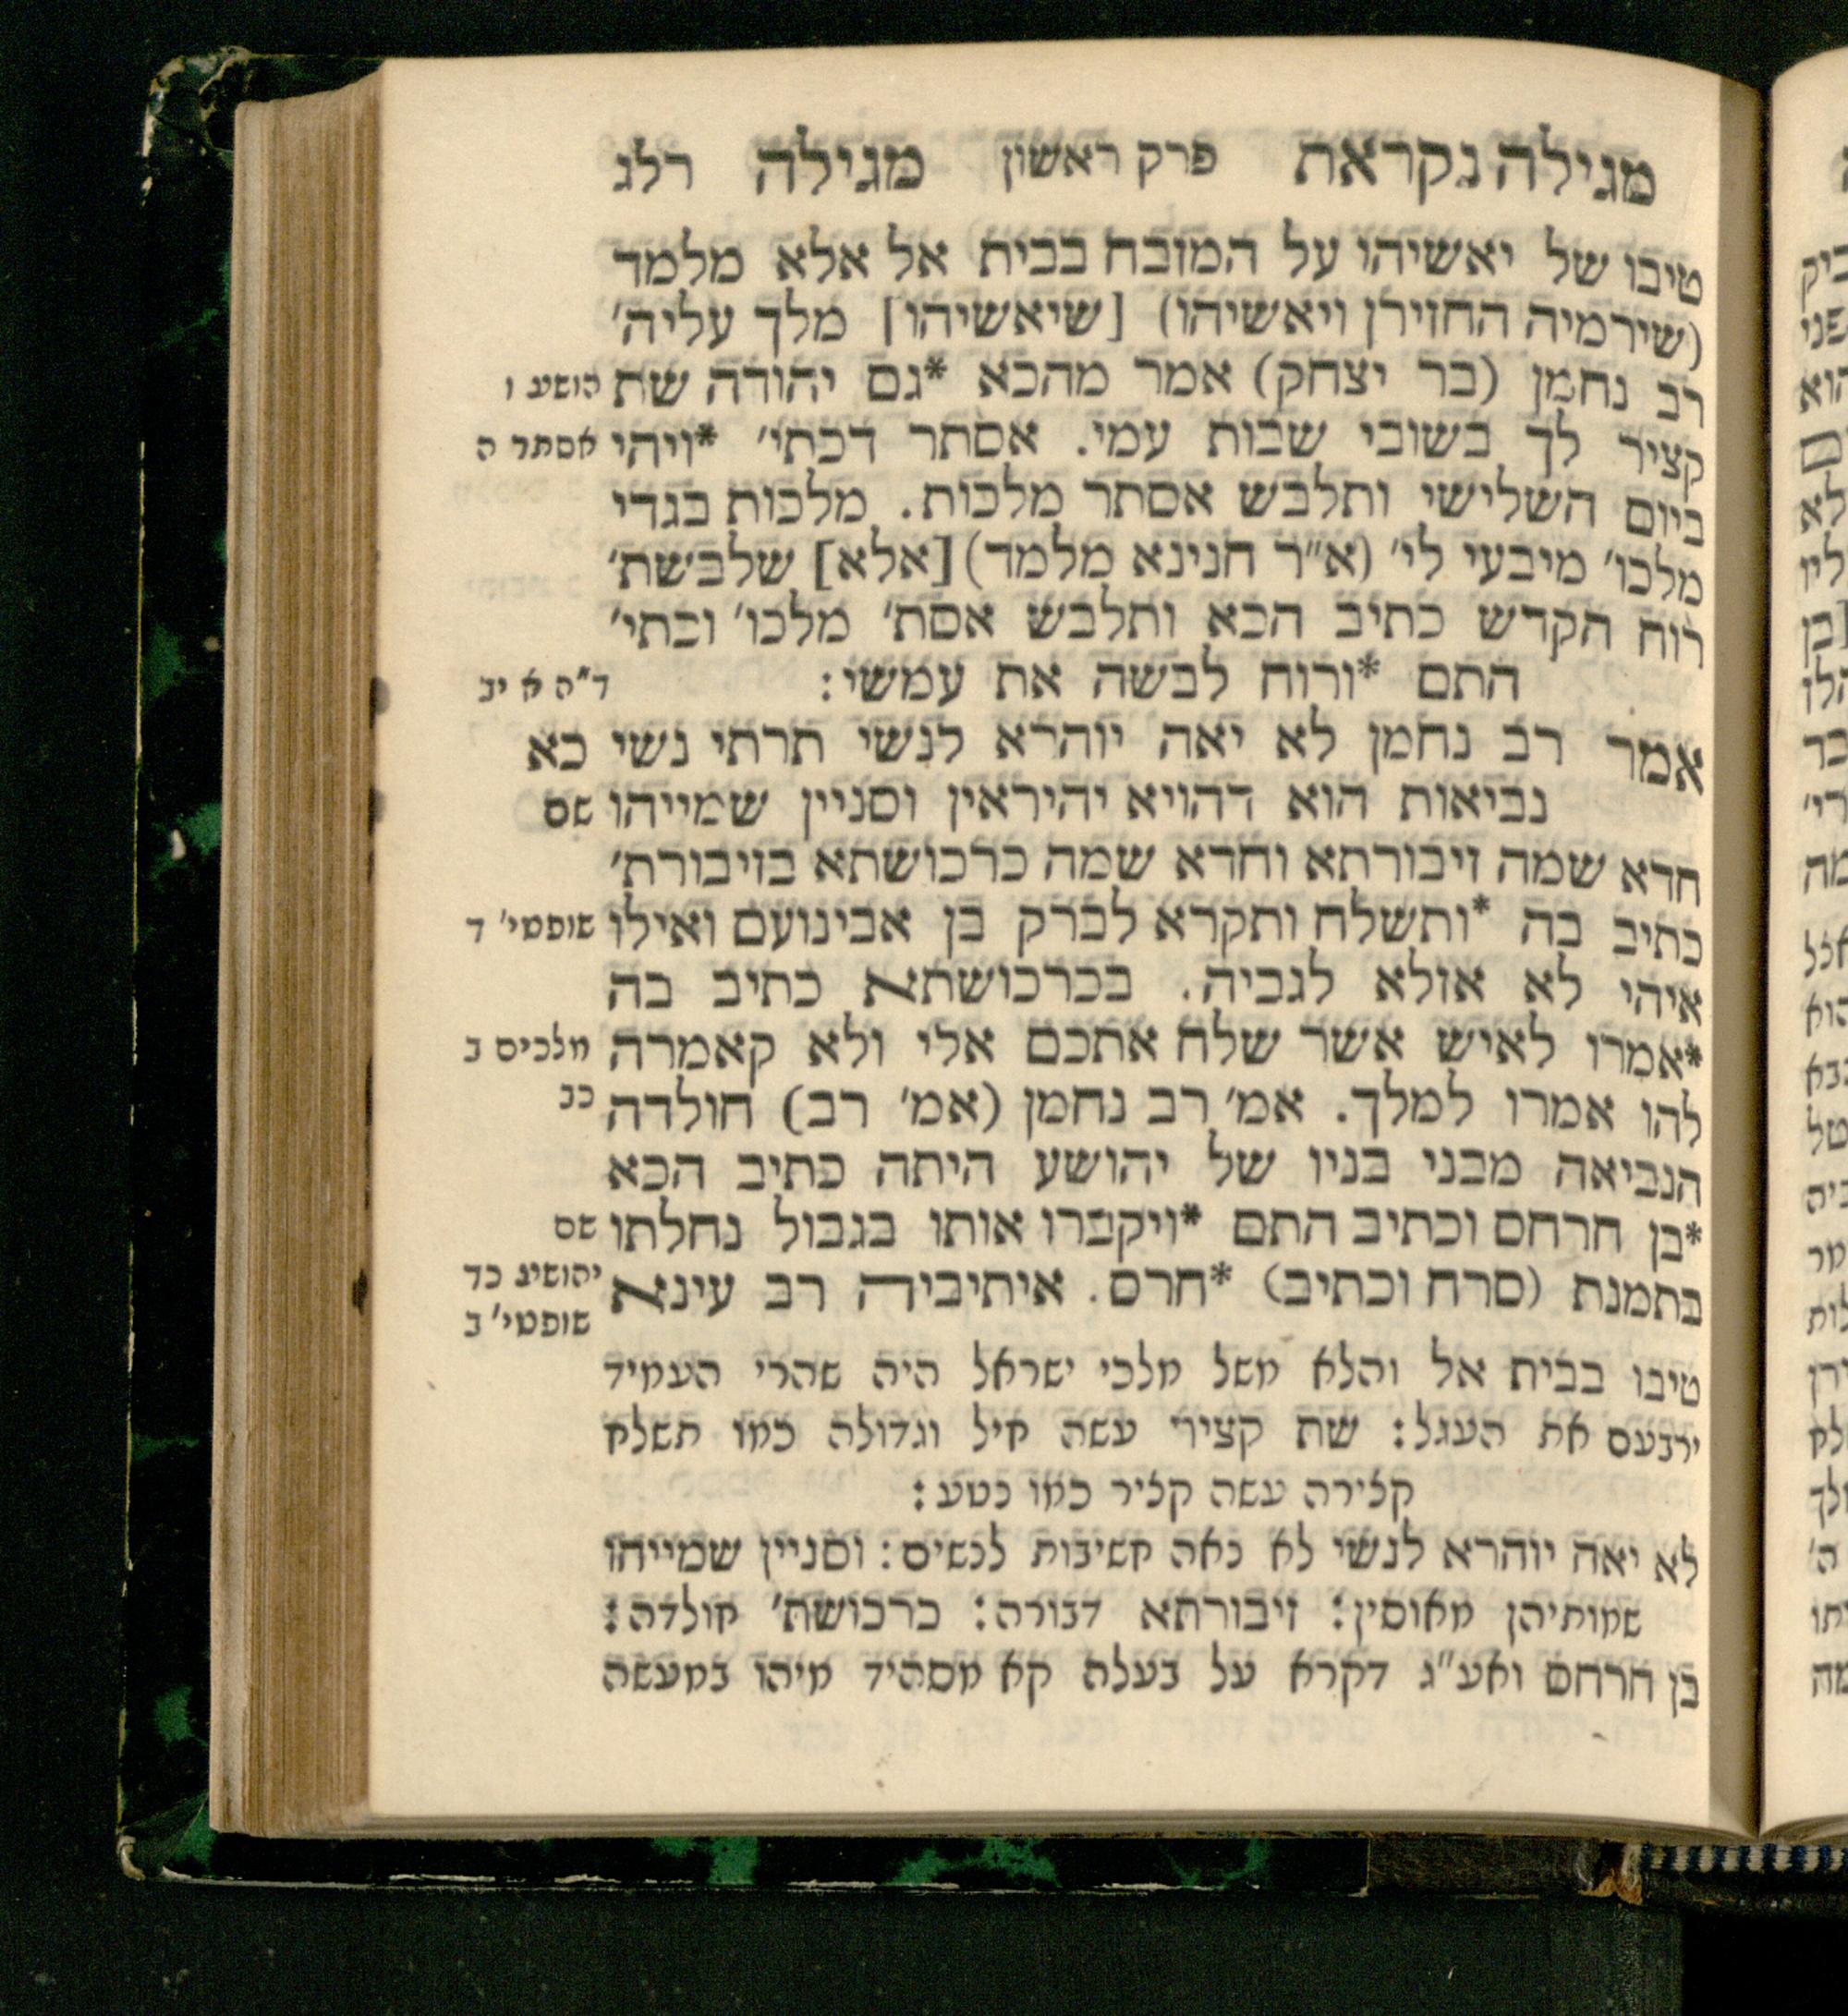 מגילה נקראת פרק ראשון מגילה רלג
טיבו של יאשיהו על המזבח בבית אל אלא מלמד
(שירמיה החזירן ויאשיהו) [שיאשיהו] מלך עליה'
רב נחמן (בר יצחק) אמר מהכא *גם יהודה שת הושע ו
קציר לך בשובי שבות עמי. אסתר דכתי' *ויהי אסתר ה
ביום השלישי ותלבש אסתר מלכות. מלכות בגדי
מלכו' מיבעי לי' (א"ר חנינא מלמד) [אלא] שלבשת'
רוח הקדש כתיב הכא ותלבש אסת' מלכו' וכתי'
התם *ורוח לבשה את עמשי: ד"ה א יב
אמר רב נחמן לא יאה יוהרא לנשי תרתי נשי כא
נביאות הוא דהויא יהיראין וסניין שמייהו שם
חדא שמה זיבורתא וחדא שמה כרכושתא בזיבורת'
כתיב בה *ותשלח ותקרא לברק בן אבינועם ואילו שופטי' ד
איהי לא אזלא לגביה. בכרכושתא כתיב בה
*אמרו לאיש אשר שלח אתכם אלי ולא קאמרה מלכים ב
להו אמרו למלך. אמ' רב נחמן (אמ' רב) חולדה כב
הנביאה מבני בניו של יהושע היתה כתיב הכא
*בן חרחם וכתיב התם *ויקברו אותו בגבול נחלתו שם
בתמנת (סרח וכתיב) *חרם. איתיביה רב עינא יהושע כד
שופטי' ב
טיבו בבית אל והלא משל מלכי ישראל היה שהרי העמיד
ירבעם את העגל: שת קציר עשה חיל וגדולה כמו תשלח
קצירה עשה קציר כמו נטע:
לא יאה יוהרא לנשי לא נאה חשיבות לנשים: וסניין שמייהו
שמותיהן מאוסין: זיבורתא דבורה: כרכושת' חולדה:
בן חרחם ואע"ג דקרא על בעלה קא מסהיד מיהו במעשה